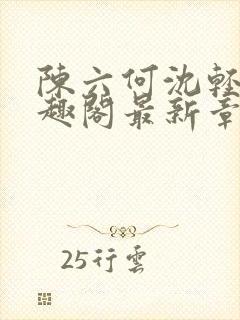 陳六何沈輕
趣閣最新章
25行雲